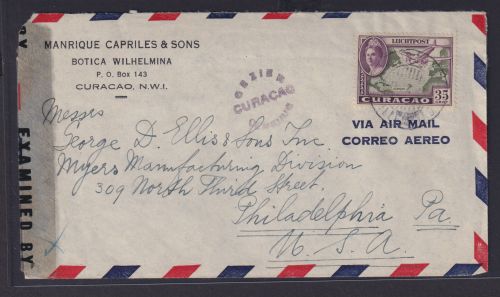 BY
EXAMINED BY
MANRIQUE CAPRILES & SONS
BOTICA WILHELMINA
P. O. BOX 143
CURACAO, N.W.I.
GEZIEN
CURACAO
LUCHTPOST
35
CURACAO
VIA AIR MAIL
CORREO AEREO
Messrs
George D. Ellis & Sons Inc.
Myers Manufacturing Division
309 North Third Street.
Philadelphia Pa.
U. S. A.